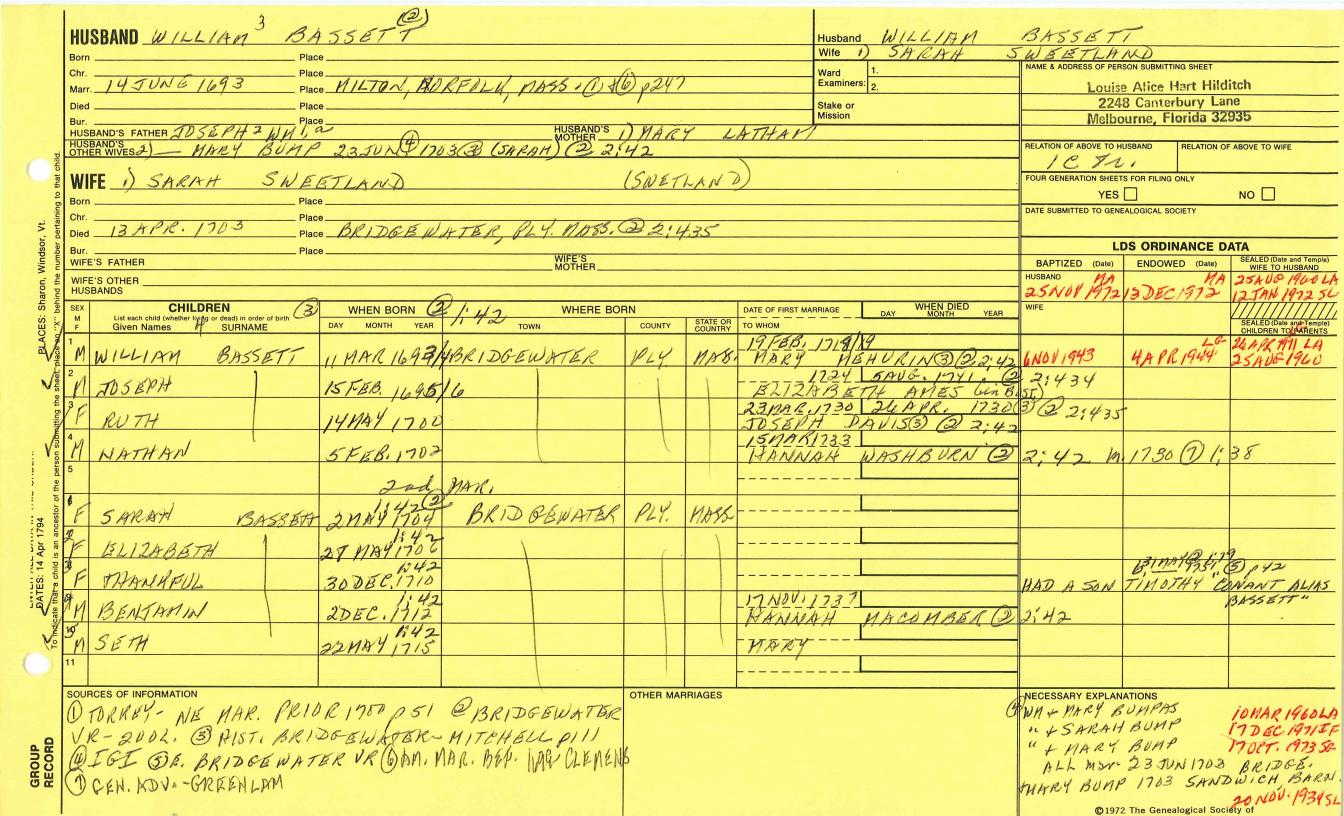 HUSBAND WILLIAM 3 BASSETT ②
Husband WILLIAM BASSETT
Wife 1) SARAH SWEETLAND
Born Place
Chr. Place
Marr. 14 JUNE 1693 Place MILTON, NORFOLK, MASS. ① & ⑥ p247
Died Place
Bur. Place
Ward Examiners: 1. 2.
Stake or Mission
NAME & ADDRESS OF PERSON SUBMITTING SHEET
Louise Alice Hart Hilditch
2248 Canterbury Lane
Melbourne, Florida 32935
HUSBAND'S FATHER JOSEPH 2 WM 1, a HUSBAND'S MOTHER 1) MARY LATHAM
HUSBAND'S OTHER WIVES 2) — MARY BUMP 23 JUN ④ 1703 ③ (SARAH) ② 2:42
RELATION OF ABOVE TO HUSBAND RELATION OF ABOVE TO WIFE
WIFE 1) SARAH SWEETLAND (SWETLAND)
FOUR GENERATION SHEETS FOR FILING ONLY
YES NO
Born Place
Chr. Place
DATE SUBMITTED TO GENEALOGICAL SOCIETY
Died 13 APR. 1703 Place BRIDGEWATER, PLY. MASS. ② 2:435
Bur. Place
LDS ORDINANCE DATA
WIFE'S FATHER WIFE'S MOTHER
BAPTIZED (Date) ENDOWED (Date) SEALED (Date and Temple) WIFE TO HUSBAND
WIFE'S OTHER HUSBANDS
HUSBAND MA MA 25 AUG 1960 LA
25 NOV 1972 13 DEC 1972 12 JAN 1972 SL
SEX M F CHILDREN ③ WHEN BORN ② 1:42 WHERE BORN DATE OF FIRST MARRIAGE WHEN DIED WIFE
List each child (whether living or dead) in order of birth
Given Names SURNAME DAY MONTH YEAR TOWN COUNTY STATE OR COUNTRY TO WHOM DAY MONTH YEAR
SEALED (Date and Temple) CHILDREN TO PARENTS
19 FEB. 1718/19
1 M WILLIAM BASSETT 11 MAR 1693/4 BRIDGEWATER PLY MAS. MARY MEHURIN ③ ② 2:42 6 NOV 1943 4 APR 1944 25 AUG 1960
1724 5 AUG. 1741 ② 2:434
2 M JOSEPH 15 FEB. 1695/6 ELIZABETH AMES
23 MAR. 1730 26 APR. 1730 ③ ② 2:435
3 F RUTH 14 MAY 1700 JOSEPH DAVIS ③ ② 2:42
15 MAR 1733
4 M NATHAN 5 FEB. 1702 HANNAH WASHBURN ② 2:42 m. 1730 ⑦ 1:38
5
2nd MAR.
1:42 ②
6 F SARAH BASSETT 2 MAY 1704 BRIDGEWATER PLY. MASS.
1:42
7 F ELIZABETH 27 MAY 1706
1:42
8 F THANKFUL 30 DEC. 1710 HAD A SON TIMOTHY "CONANT ALIAS BASSETT" ⑤ p42
1:42 17 NOV. 1737
9 M BENJAMIN 2 DEC. 1712 HANNAH MACOMBER ② 2:42
1:42
10 M SETH 22 MAY 1715 MARY
11
SOURCES OF INFORMATION
① TORREY - NE MAR. PRIOR 1700 p 51 ② BRIDGEWATER
VR - 2 VOL. ③ HIST. BRIDGEWATER - MITCHELL p111
④ IGI ⑤ E. BRIDGEWATER VR ⑥ AM. MAR. REP. CLEMENS
⑦ GEN. ADV. - GREENLAW
OTHER MARRIAGES
NECESSARY EXPLANATIONS
④ WM + MARY BUMPAS 10 MAR 1960 LA
" + SARAH BUMP 17 DEC 1971 IF
" + MARY BUMP 17 OCT. 1973 SL
ALL MAR 23 JUN 1703 BRIDGE.
+ MARY BUMP 1703 SANDWICH BARN.
20 NOV. 1934 SL
©1972 The Genealogical Society of
GROUP RECORD
DATES: 14 Apr 1794 PLACES: Sharon, Windsor, Vt.
To indicate that a child is an ancestor of the person submitting the sheet, place an "X" behind the number pertaining to that child.